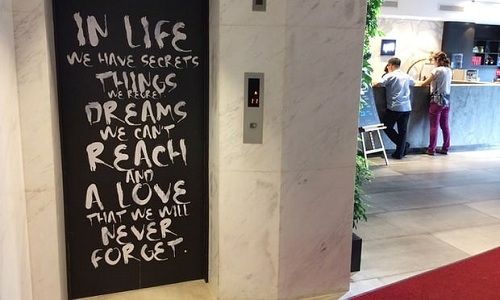 IN LIFE
WE HAVE SECRETS
THINGS
WE REGRET
DREAMS
WE CAN'T
REACH
AND
A LOVE
THAT WE WILL
NEVER
FORGET.